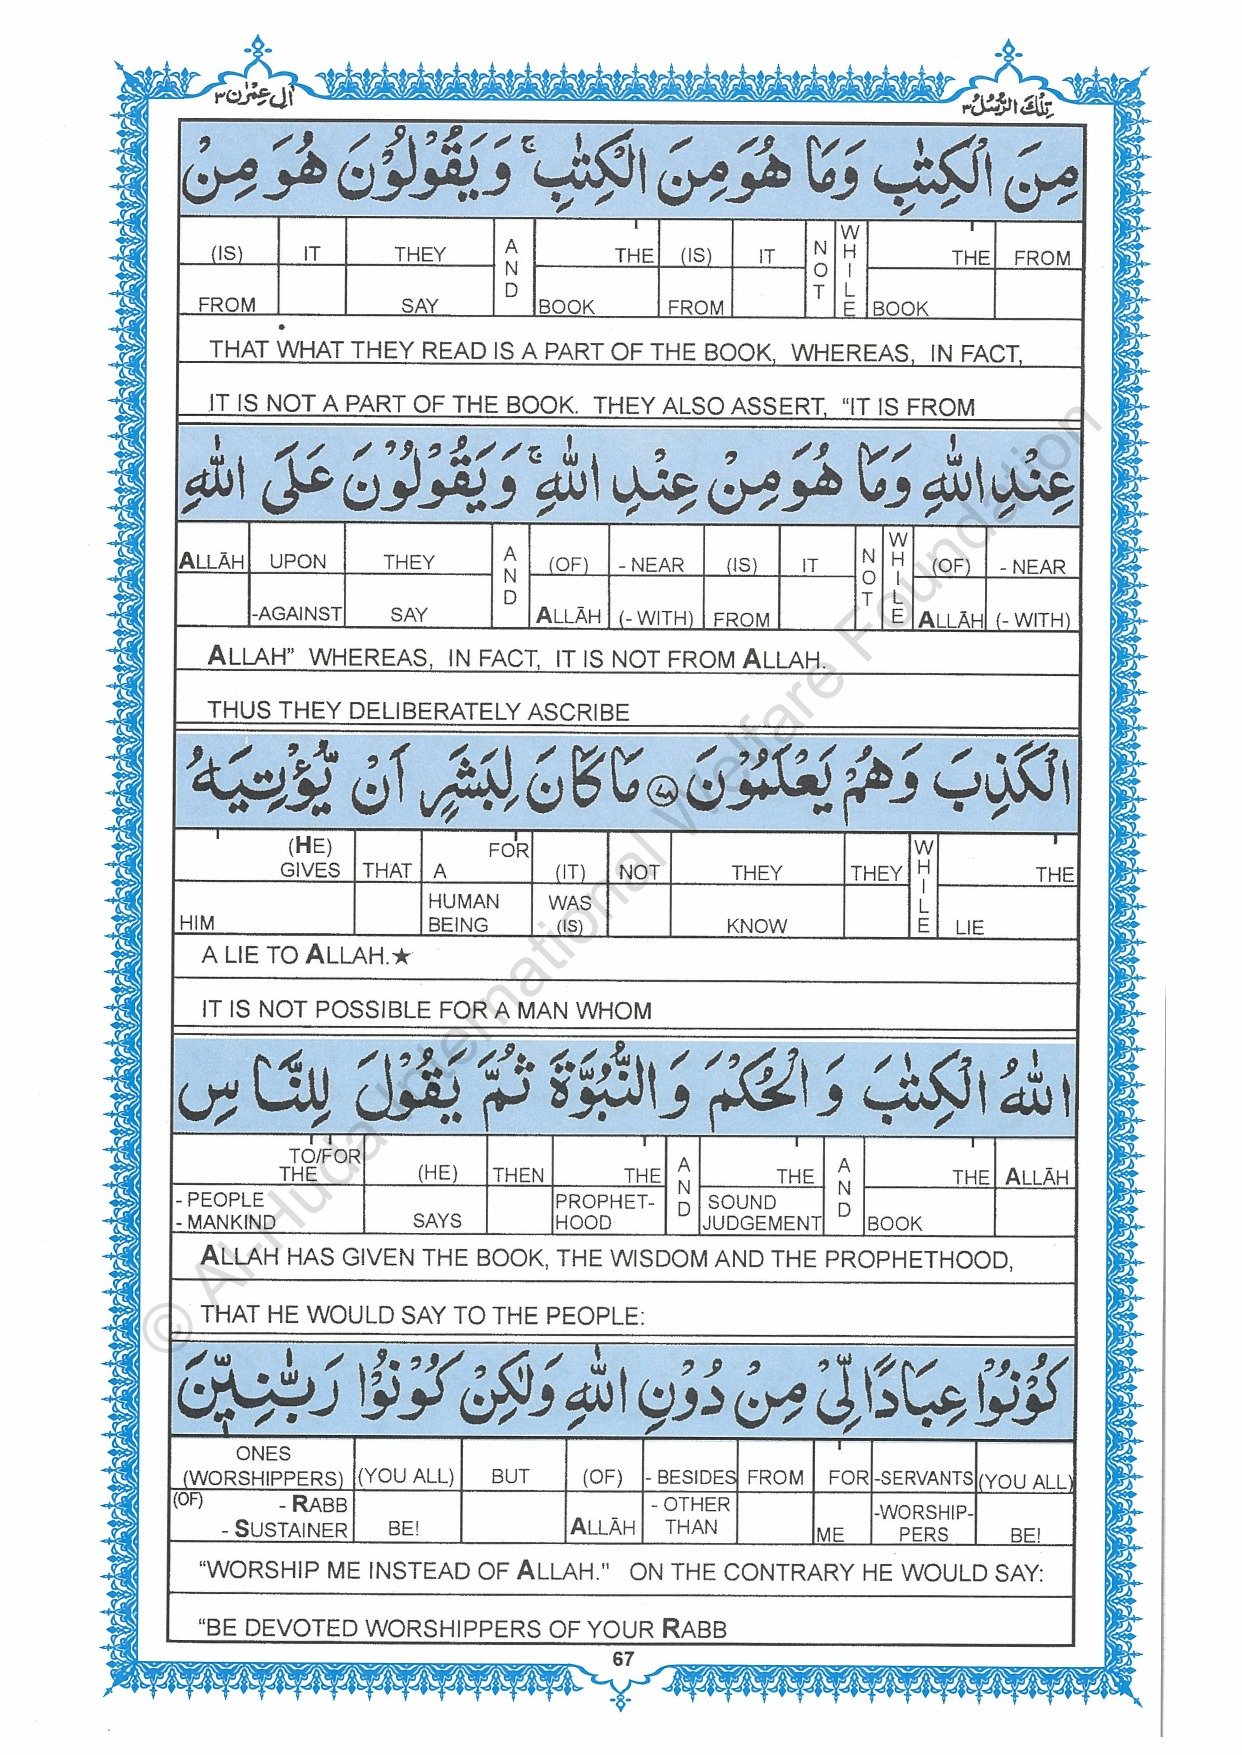 اٰلِ عِمْرٰن ٣
تِلْكَ الرُّسُلُ ٣
مِنَ الْكِتٰبِ وَمَا هُوَ مِنَ الْكِتٰبِ ۚ وَيَقُوْلُوْنَ هُوَ مِنْ
(IS) IT THEY AND THE (IS) IT NOT WHILE THE FROM
FROM SAY BOOK FROM BOOK
THAT WHAT THEY READ IS A PART OF THE BOOK, WHEREAS, IN FACT,
IT IS NOT A PART OF THE BOOK. THEY ALSO ASSERT, “IT IS FROM
عِنْدِ اللّٰهِ وَمَا هُوَ مِنْ عِنْدِ اللّٰهِ ۚ وَيَقُوْلُوْنَ عَلَى اللّٰهِ
ALLĀH UPON THEY AND (OF) - NEAR (IS) IT NOT WHILE (OF) - NEAR
-AGAINST SAY ALLĀH (- WITH) FROM ALLĀH (- WITH)
ALLAH” WHEREAS, IN FACT, IT IS NOT FROM ALLAH.
THUS THEY DELIBERATELY ASCRIBE
الْكَذِبَ وَهُمْ يَعْلَمُوْنَ ﴿٧٨﴾ مَا كَانَ لِبَشَرٍ اَنْ يُّؤْتِيَهُ
(HE) GIVES THAT FOR A (IT) NOT THEY THEY WHILE THE
HIM HUMAN BEING WAS (IS) KNOW LIE
A LIE TO ALLAH.★
IT IS NOT POSSIBLE FOR A MAN WHOM
اللّٰهُ الْكِتٰبَ وَ الْحُكْمَ وَ النُّبُوَّةَ ثُمَّ يَقُوْلَ لِلنَّاسِ
TO/FOR THE (HE) THEN THE AND THE AND THE ALLĀH
- PEOPLE - MANKIND SAYS PROPHET-HOOD SOUND JUDGEMENT BOOK
ALLAH HAS GIVEN THE BOOK, THE WISDOM AND THE PROPHETHOOD,
THAT HE WOULD SAY TO THE PEOPLE:
كُوْنُوْا عِبَادًا لِّىْ مِنْ دُوْنِ اللّٰهِ وَلٰكِنْ كُوْنُوْا رَبّٰنِيّٖنَ
ONES (WORSHIPPERS) (YOU ALL) BUT (OF) - BESIDES FROM FOR -SERVANTS (YOU ALL)
(OF) - RABB - SUSTAINER BE! ALLĀH - OTHER THAN ME -WORSHIP-PERS BE!
“WORSHIP ME INSTEAD OF ALLAH.” ON THE CONTRARY HE WOULD SAY:
“BE DEVOTED WORSHIPPERS OF YOUR RABB
67
© Al-Huda International Welfare Foundation